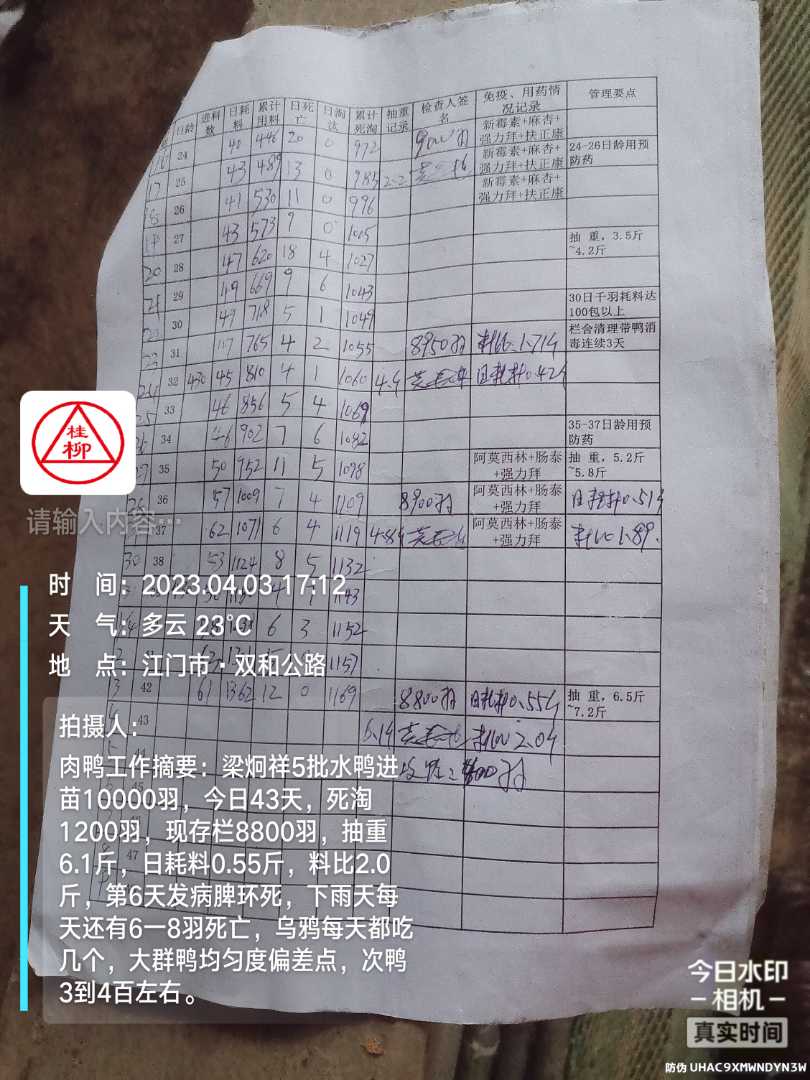 日龄 进料数 日耗料 累计用料 日死亡 日淘汰 累计死淘 抽重记录 检查人签名 免疫、用药情况记录 管理要点
24 41 446 20 0 972 新霉素+麻杏+强力拜+扶正康
17 25 43 489 13 0 985 新霉素+麻杏+强力拜+扶正康 24-26日龄用预防药
18 26 41 530 11 0 996 新霉素+麻杏+强力拜+扶正康
19 27 43 573 9 0 1005
20 28 47 620 18 4 1027 抽 重，3.5斤~4.2斤
21 29 49 669 9 6 1043
22 30 49 718 5 1 1049 30日千羽耗料达100包以上
23 31 765 4 2 1055 8950羽 料比1.71斤 栏舍清理带鸭消毒连续3天
32 430 45 810 4 1 1060 4.4 日耗料0.42斤
25 33 46 856 5 4 1069
34 46 902 7 6 1082 35-37日龄用预防药
35 50 952 11 5 1098 阿莫西林+肠泰+强力拜 抽 重，5.2斤~5.8斤
36 57 1009 7 4 1109 8900羽 阿莫西林+肠泰+强力拜 日耗料0.51斤
37 62 1071 6 4 1119 4.8斤 阿莫西林+肠泰+强力拜 料比1.89.
30 38 53 1124 8 5 1132
1143
6 3 1152
1157
3 42 61 1362 12 0 1169 8800羽 日耗料0.55斤 抽 重，6.5斤~7.2斤
43 6.1斤 料比2.0斤
44
45
47
桂柳
请输入内容…
时 间：2023.04.03 17:12
天 气：多云 23℃
地 点：江门市·双和公路
拍摄人：
肉鸭工作摘要：梁炯祥5批水鸭进
苗10000羽，今日43天，死淘
1200羽，现存栏8800羽，抽重
6.1斤，日耗料0.55斤，料比2.0
斤，第6天发病脾环死，下雨天每
天还有6一8羽死亡，乌鸦每天都吃
几个，大群鸭均匀度偏差点，次鸭
3到4百左右。
今日水印
–相机–
真实时间
防伪 UHAC9XMWNDYN3W